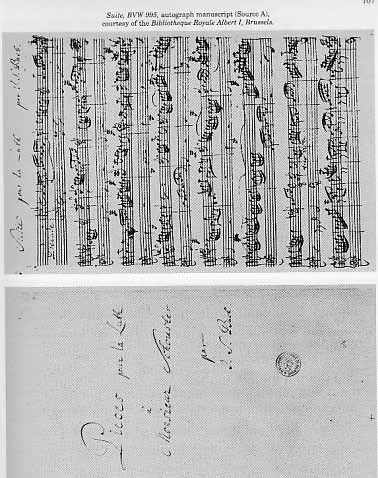 107
Suite, BVW 995, autograph manuscript (Source A),
courtesy of the Bibliotheque Royale Albert I, Brussels.
Suite pour la Luth par J. S. Bach.
Pieces pour la Luth
à
Monsieur Schouster
par
J. S. Bach